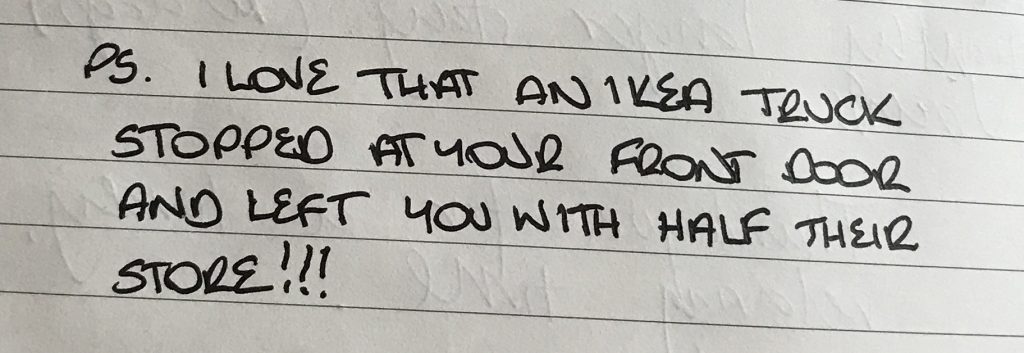 PS. I LOVE THAT AN IKEA TRUCK
STOPPED AT YOUR FRONT DOOR
AND LEFT YOU WITH HALF THEIR
STORE!!!